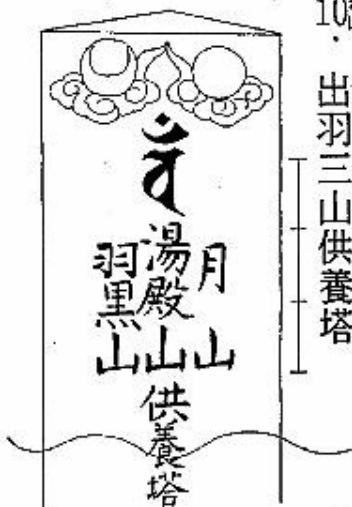 出羽三山供養塔
月山
湯殿山
羽黒山
供養塔